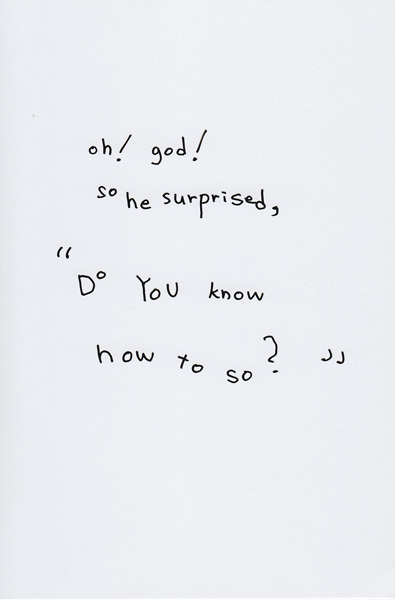 oh! god!
so he surprised,
"Do You know
how to so? "